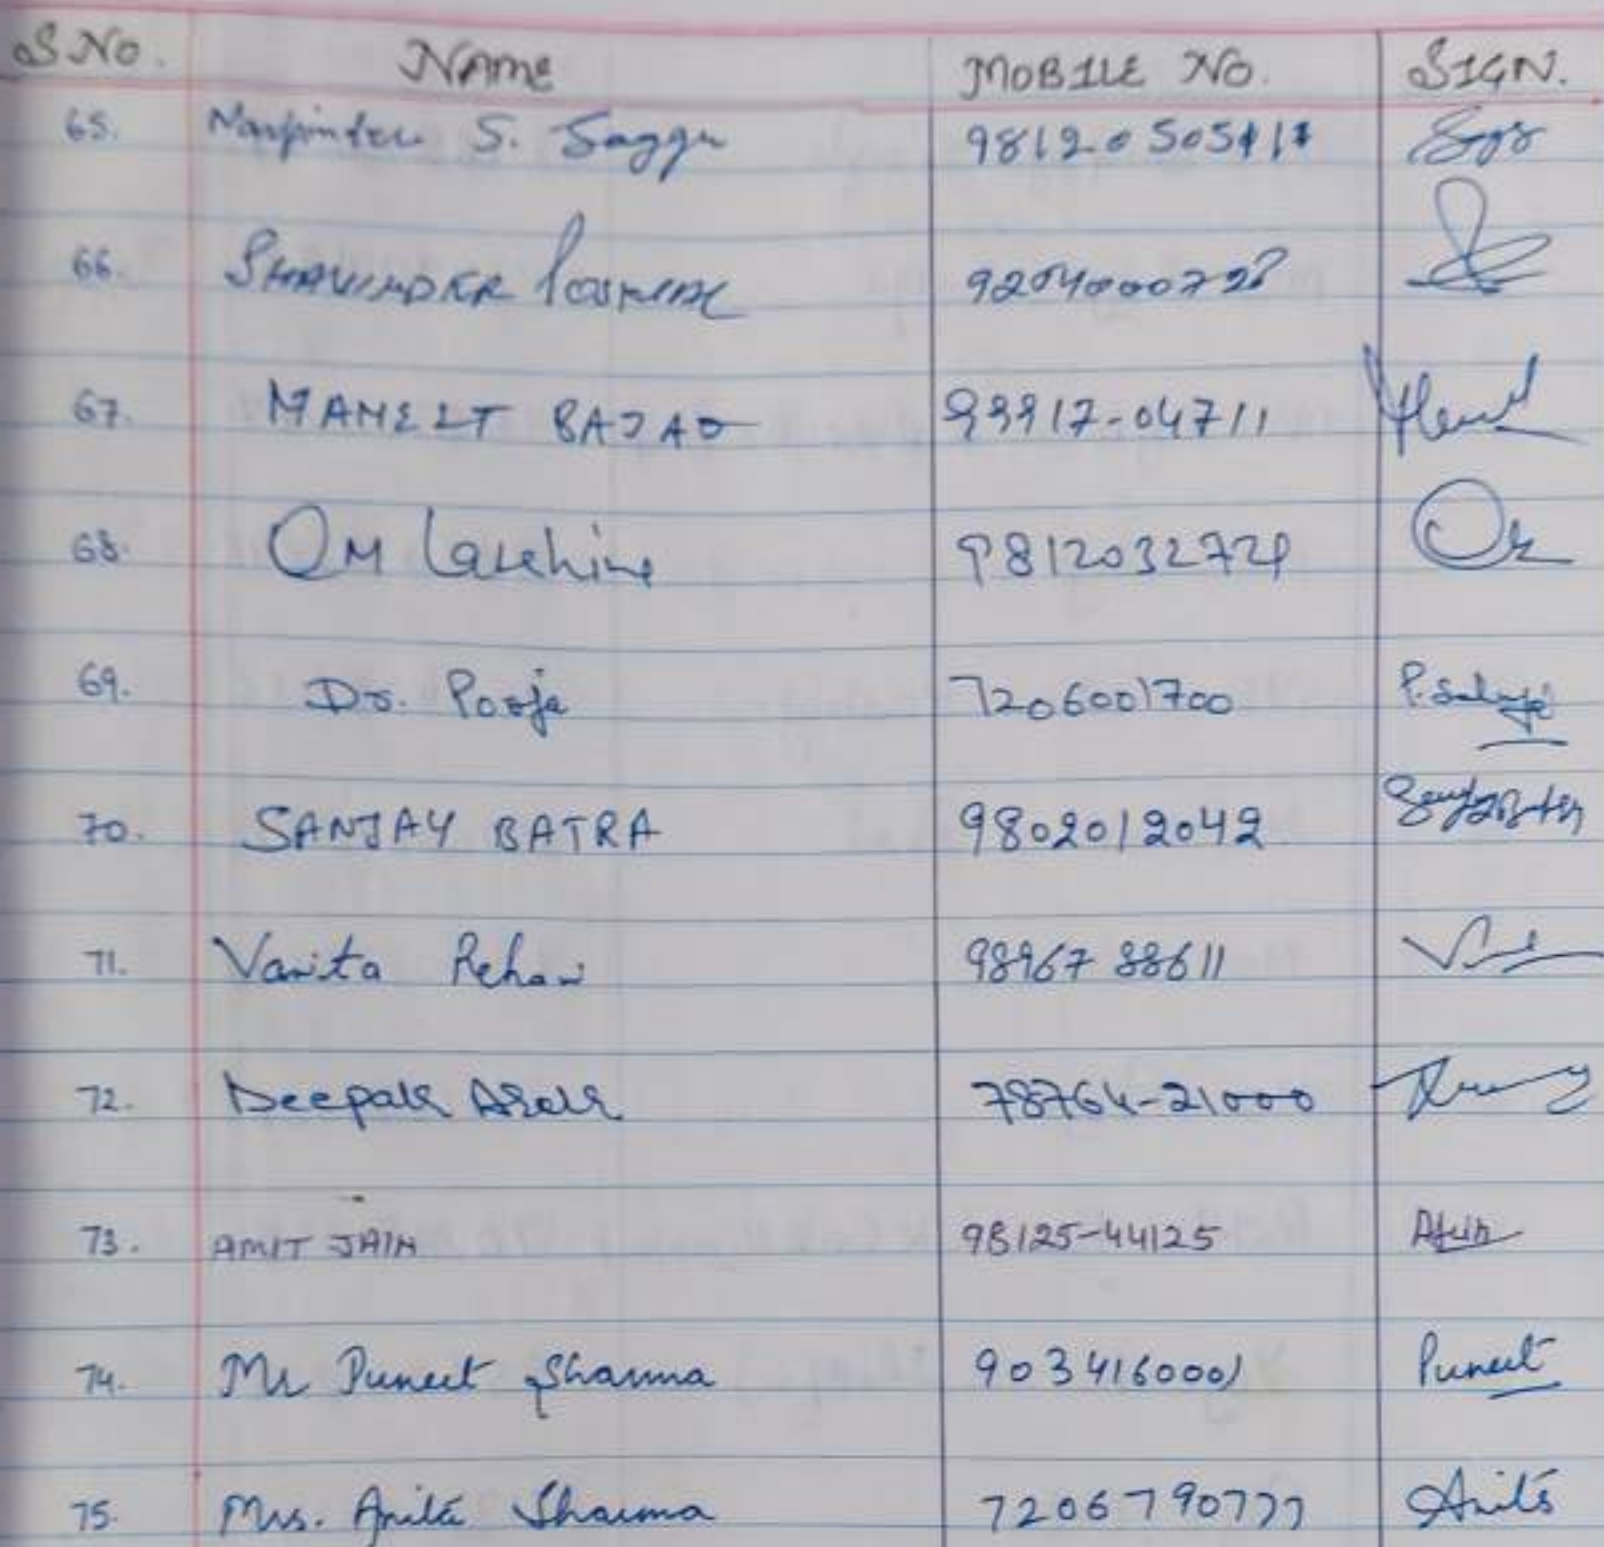 S.No. NAME MOBILE NO. SIGN.
65. S. Saggu
66. SHAVINDER
67. MANEET BAJAJ 99917-04711
68. OM 9812032729
69. Dr. Pooja 7206001700 P.Saluja
70. SANJAY BATRA 9802012042 Sanjay Batra
71. Vanita Rehan 98967 88611
72. Deepak 78764-21000
73. AMIT JAIN 98125-44125 AJain
74. Mr Puneet Sharma 9034160001 Puneet
75. Mrs. Anita Sharma 7206790777 Anita